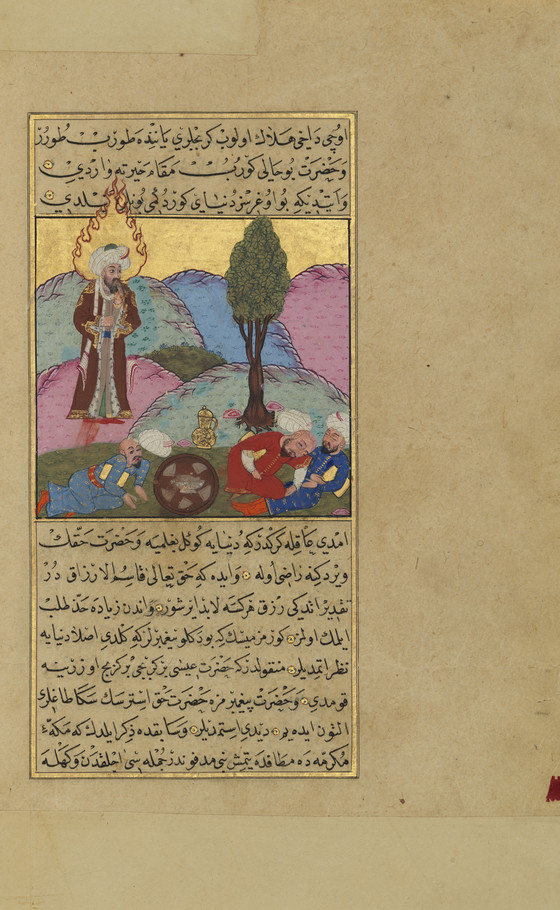 اوچی دخی هلاك اولوب كرنجلری یاننده طورب طورر
وحضرت بو حالی كوروب مقام حیرته واردی
وایتدیكه بو اوغرسز دنیای كوردكمی بونلره نیلدی
امدی عاقله كركدركه دنیایه كوكل بغلمیه وحضرت حقك
ویردكنه راضی اوله وایده كه حق تعالی قاسم الارزاق در
تقدیر اتدكی رزق هركسه لابد ایرشور واندن زیاده حد طلب
ایلك اولمز كورمزمیسك كه بو دكلو پیغمبرلر كه كلدی اصلا دنیایه
نظر اتمدیلر منقولدركه حضرت عیسی بر كرپجی بر كرپج اوزرنیه
قومدی وحضرت پیغمبرمزه حضرت حق استرسك سكا طاغلری
التون ایده یم دیدی استمدیلر وسابقده ذكر ایلدك كه مكهٔ
مكرمه ده مطافده یتمش نبی مدفوندر جمله سی اجلقدن وكهله